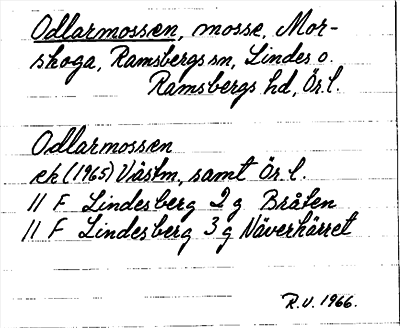 Odlarmossen, mosse, Mor-
skoga, Ramsbergs sn, Lindes o.
Ramsbergs hd, Ör. l.
Odlarmossen
ek (1965) Västm, samt Ör. l.
11 F Lindesberg 2 g Bråten
11 F Lindesberg 3 g Näverkärret
R.V. 1966.